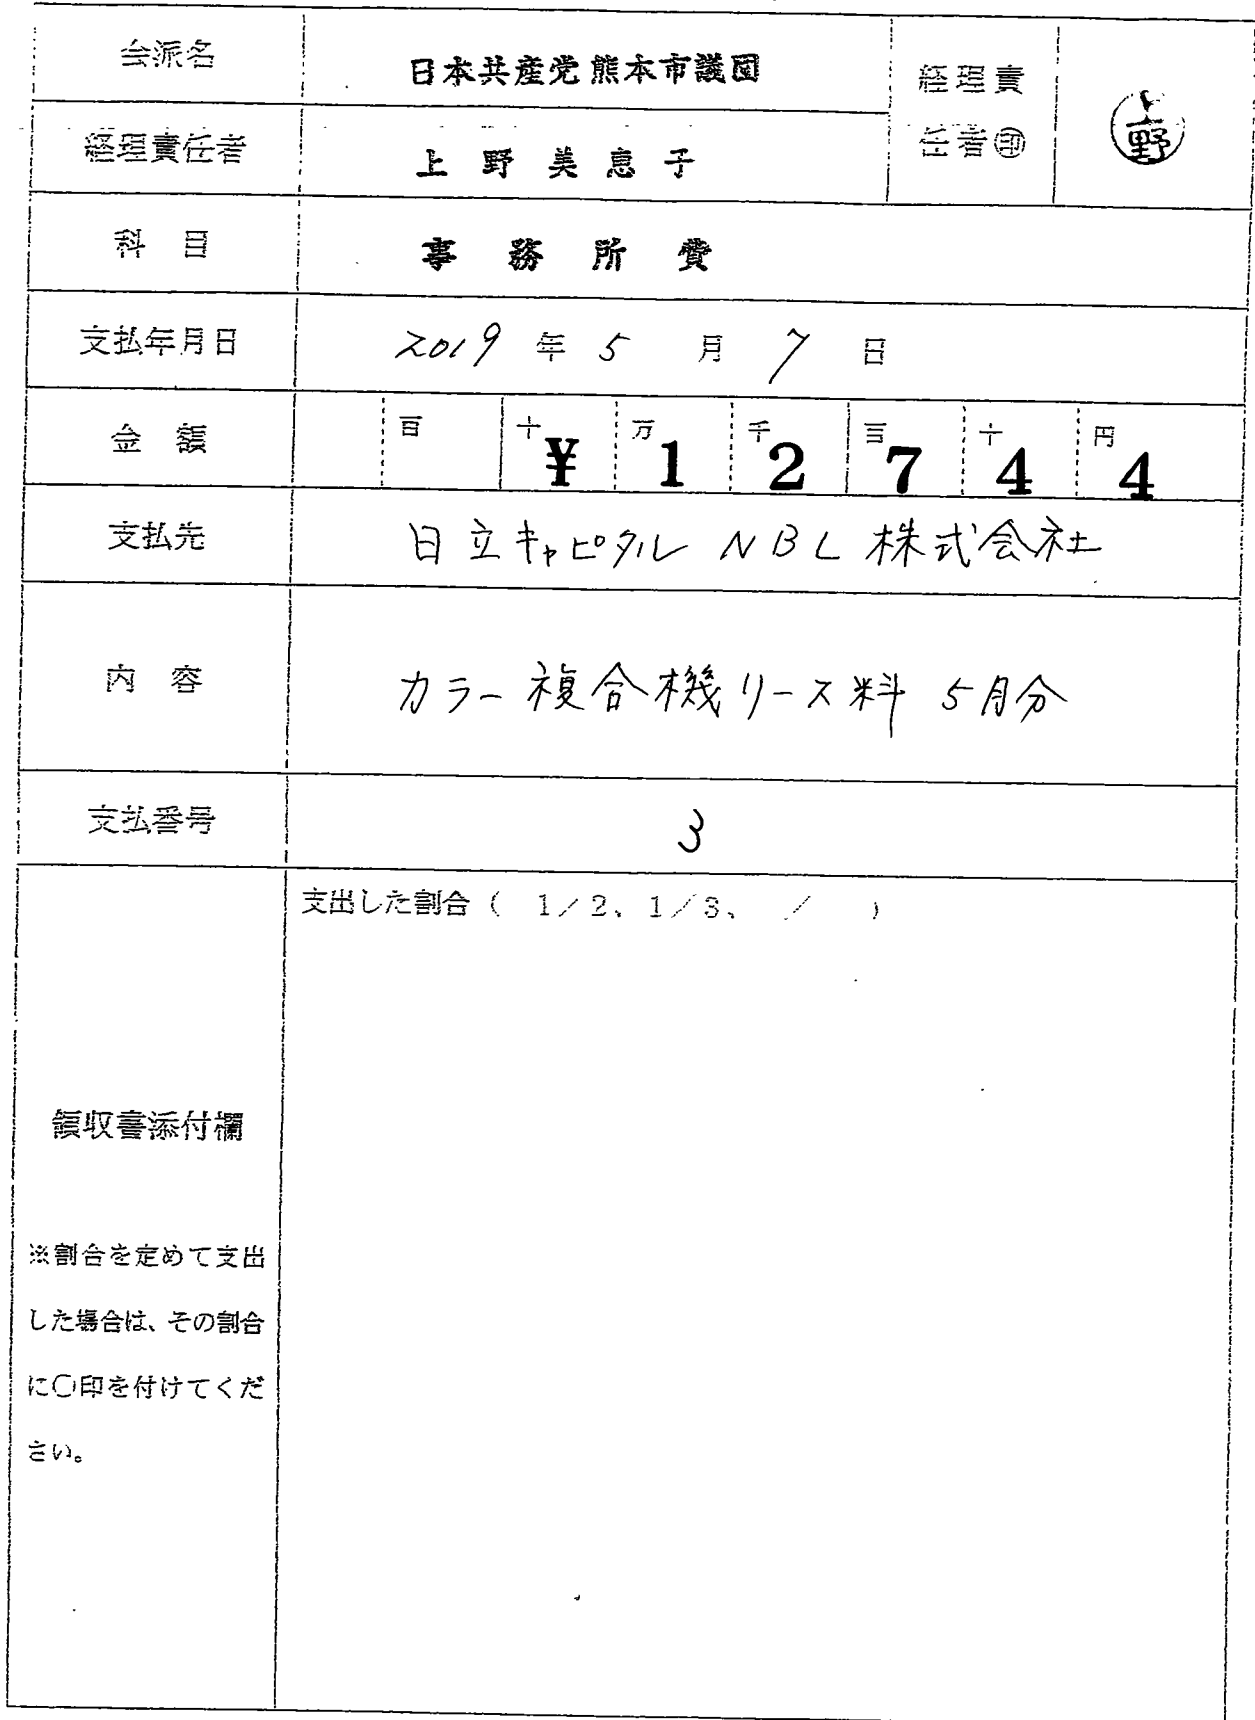 会派名 日本共産党熊本市議団 経理責
任者㊞ 上野
経理責任者 上野美恵子
科目 事務所費
支払年月日 2019年5月7日
金額 百 十 ¥ 万 1 千 2 百 7 十 4 円 4
支払先 日立キャピタルNBL株式会社
内容 カラー複合機リース料 5月分
支払番号 3
支出した割合( 1/2、1/3、 / )
領収書添付欄
※割合を定めて支出
した場合は、その割合
に○印を付けてくだ
さい。